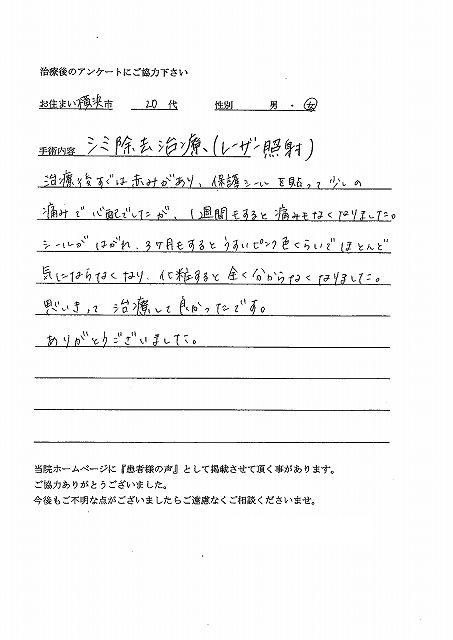 治療後のアンケートにご協力下さい
お住まい 横浜 市 20 代 性別 男 ・ 女
手術内容 シミ除去治療、(レーザー照射)
治療後すぐは赤みがあり、保護シールを貼って少しの
痛みで心配でしたが、1週間もすると痛みもなくなりました。
シールがはがれ、3ヶ月もするとうすいピンク色くらいでほとんど
気にならなくなり、化粧すると全く分からなくなりました。
思いきって治療して良かったです。
ありがとうございました。
当院ホームページに『患者様の声』として掲載させて頂く事があります。
ご協力ありがとうございました。
今後もご不明な点がございましたらご遠慮なくご相談くださいませ。